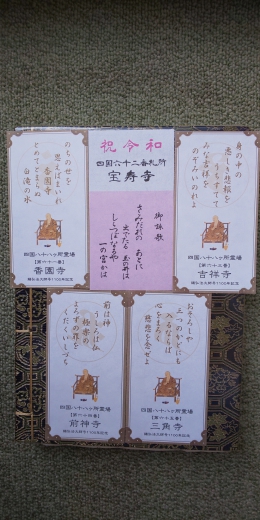 のちの世を
思えばまいれ
香園寺
とめてとまらぬ
白滝の水
四国八十八ヶ所霊場
【第六十一番】
香園寺
祝令和
四国六十二番札所
宝寿寺
御詠歌
さみだれの あとに
出でたる 玉の井は
しらつぼなるや
一の宮かは
身の中の
悪しき悲報を
うちすてて
みな吉祥を
のぞみいのれよ
四国八十八ヶ所霊場
【第六十三番】
吉祥寺
前は神
うしろは仏
極楽の
よろずの罪を
くだくいしづち
四国八十八ヶ所霊場
【第六十四番】
前神寺
おそろしや
三つのかどにも
入るならば
心をまろく
慈悲を念ぜよ
四国八十八ヶ所霊場
【第六十五番】
三角寺